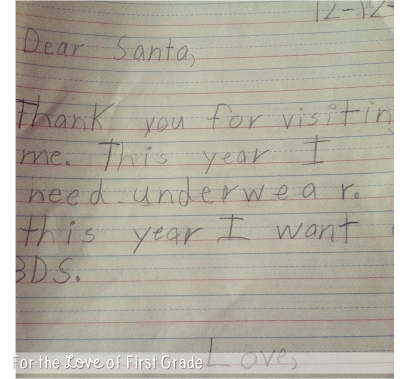 12-12-
Dear Santa,
Thank you for visitin
me. This year I
need underwear.
this year I want
3DS.
Love,
For the Love of First Grade